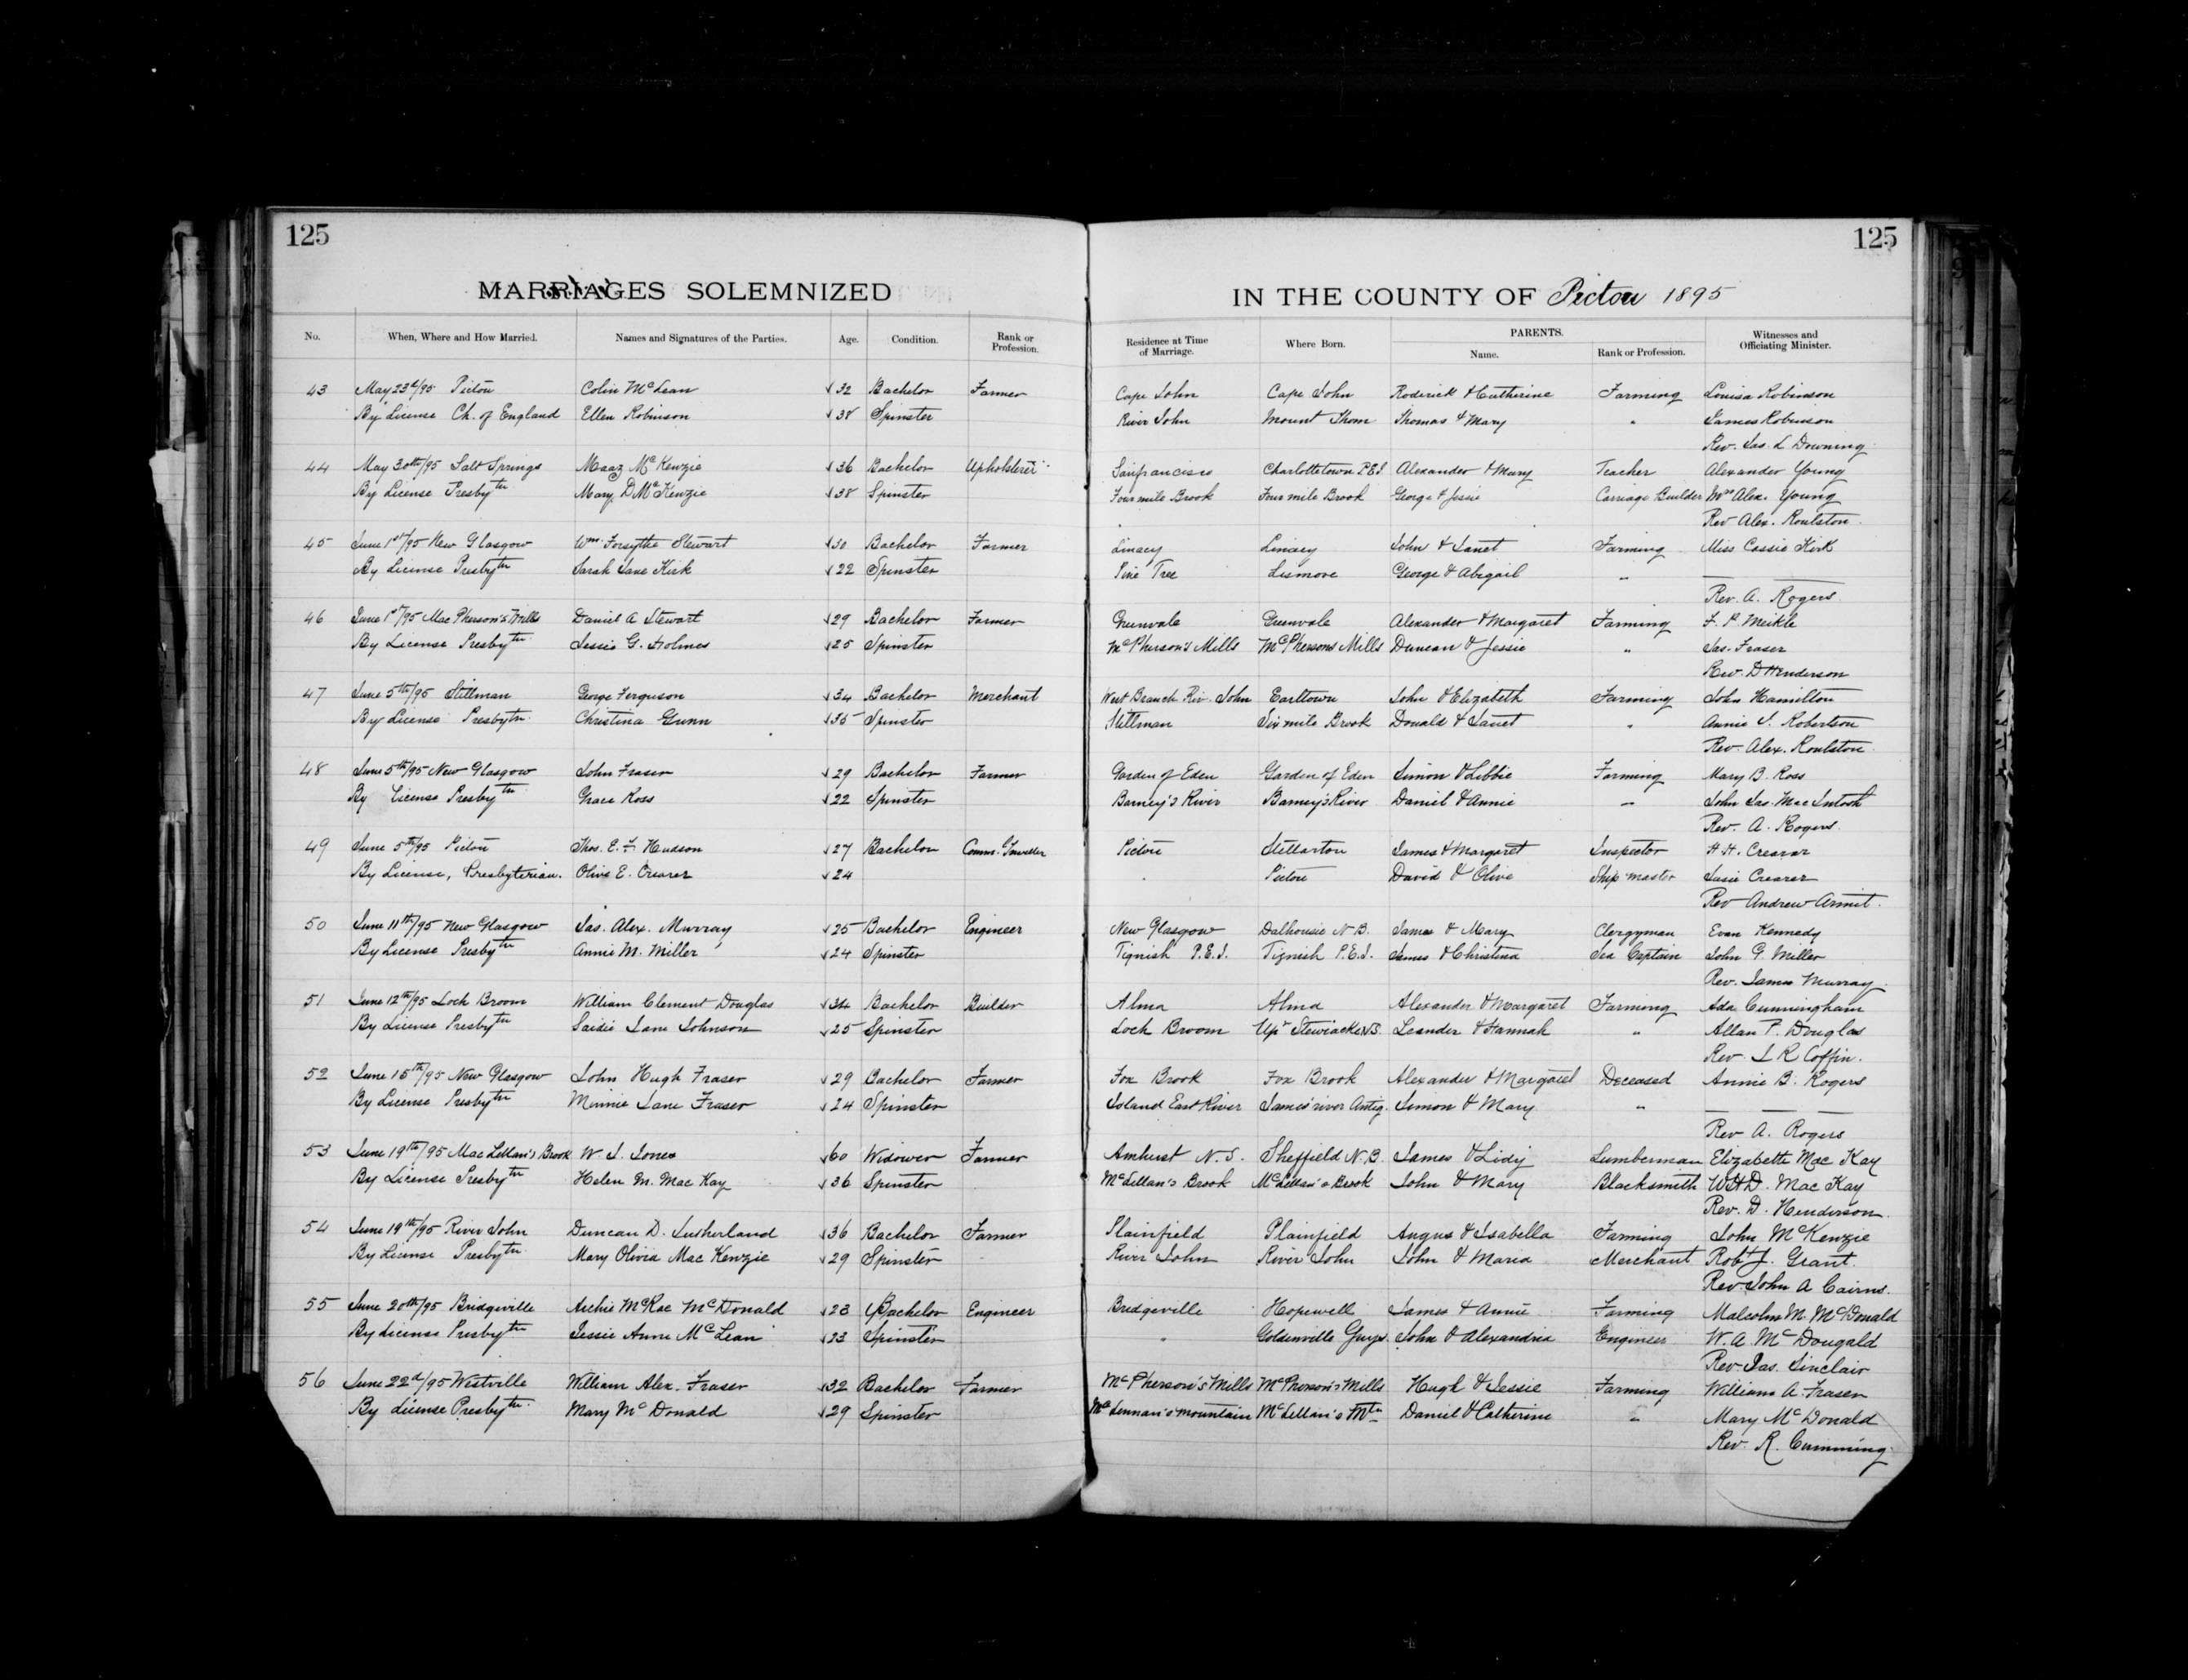 125
125
MARRIAGES SOLEMNIZED
IN THE COUNTY OF Pictou 1895
No. When, Where and How Married. Names and Signatures of the Parties. Age. Condition. Rank or Profession. Residence at Time of Marriage. Where Born. PARENTS. Name. Rank or Profession. Witnesses and Officiating Minister.
43 May 23d/95 Pictou Colin McLean 32 Bachelor Farmer Cape John Cape John Roderick & Catherine Farming Louisa Robinson
By License Ch. of England Ellen Robinson 38 Spinster River John Mount Thom Thomas & Mary " James Robinson
Rev. Jas. L Downing
44 May 30th/95 Salt Springs McKenzie 36 Bachelor Upholsterer Sanfrancisco Charlottetown P.E.I. Alexander & Mary Teacher Alexander Young
By License Presbytn Mary D McKenzie 38 Spinster Four mile Brook Four mile Brook George & Jessie Carriage Builder Mrs Alex. Young
Rev Alex. Roulston.
45 June 1st/95 New Glasgow Wm. Forsythe Stewart 30 Bachelor Farmer Linacy Linacy John & Janet Farming Miss Cassie Kirk
By License Presbytn Sarah Jane Kirk 22 Spinster Pine Tree Lismore George & Abigail "
Rev. A. Rogers
46 June 1st/95 MacPherson's Mills Daniel A Stewart 29 Bachelor Farmer Greenvale Greenvale Alexander & Margaret Farming F. P. Meikle
By License Presbytn. Jessie G. Holmes 25 Spinster McPherson's Mills McPhersons Mills Duncan & Jessie " Jas. Fraser
Rev. D Henderson
47 June 5th/95 Stillman George Ferguson 34 Bachelor Merchant West Branch Riv. John Earltown John & Elizabeth Farming John Hamilton
By License Presbytn. Christina Gunn 35 Spinster Stillman Six mile Brook Donald & Janet " Annie J. Robertson
Rev. Alex. Roulston.
48 June 5th/95 New Glasgow John Fraser 29 Bachelor Farmer Garden of Eden Garden of Eden Simon & Libbie Farming Mary B. Ross
By License Presbytn Grace Ross 22 Spinster Barney's River Barney's River Daniel & Annie " John Jas. MacIntosh
Rev. A. Rogers.
49 June 5th/95 Pictou Thos. E. F. Hudson 27 Bachelor Comm. Traveller Pictou Stellarton James & Margaret Inspector H. H. Crearer
By License, Presbyterian. Olive E. Crearer 24 " Pictou David & Olive Ship master Susie Crearer
Rev Andrew Armit.
50 June 11th/95 New Glasgow Jas. Alex. Murray 25 Bachelor Engineer New Glasgow Dalhousie N.B. James & Mary Clergyman Evan Kennedy
By License Presbytn Annie M. Miller 24 Spinster Tignish P.E.I. Tignish P.E.I. James & Christina Sea Captain John G. Miller
Rev. James Murray.
51 June 12th/95 Loch Broom William Clement Douglas 34 Bachelor Builder Alma Alma Alexander & Margaret Farming Ada Cunningham
By License Presbytn Saidie Jane Johnson 25 Spinster Loch Broom Upr Stewiacke N.S. Leander & Hannah " Allan P. Douglas
Rev. J R Coffin.
52 June 15th/95 New Glasgow John Hugh Fraser 29 Bachelor Farmer Fox Brook Fox Brook Alexander & Margaret Deceased Annie B. Rogers
By License Presbytn Minnie Jane Fraser 24 Spinster Island East River James' river Antig. Simon & Mary "
Rev A. Rogers
53 June 19th/95 MacLellan's Brook W. J. Jones 60 Widower Farmer Amherst N.S. Sheffield N.B. James & Lidy Lumberman Elizabeth MacKay
By License Presbytn Helen M. MacKay 36 Spinster McLellan's Brook McLellan's Brook John & Mary Blacksmith W H D. MacKay
Rev. D. Henderson.
54 June 19th/95 River John Duncan D. Sutherland 36 Bachelor Farmer Plainfield Plainfield Angus & Isabella Farming John McKenzie
By License Presbytn. Mary Olivia MacKenzie 29 Spinster River John River John John & Maria Merchant Robt J. Grant.
Rev. John A Cairns.
55 June 20th/95 Bridgeville Archie McRae McDonald 23 Bachelor Engineer Bridgeville Hopewell James & Annie Farming Malcolm M. McDonald
By License Presbytn Jessie Anne McLean 23 Spinster " Goldenville Guys. John & Alexandria Engineer W. A. McDougald
Rev. Jas. Sinclair
56 June 22d/95 Westville William Alex. Fraser 32 Bachelor Farmer McPherson's Mills McPherson's Mills Hugh & Jessie Farming William A. Fraser
By License Presbytn. Mary McDonald 29 Spinster McLennan's mountain McLellan's Mtn Daniel & Catherine " Mary McDonald
Rev. R. Cumming.